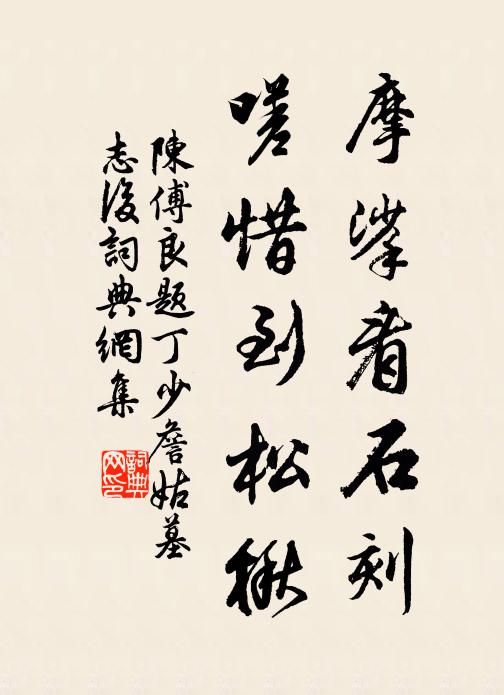 摩挲看石刻
嗟惜到松楸
陳傅良題丁少詹姑墓
志後詞典網集
詞典网印